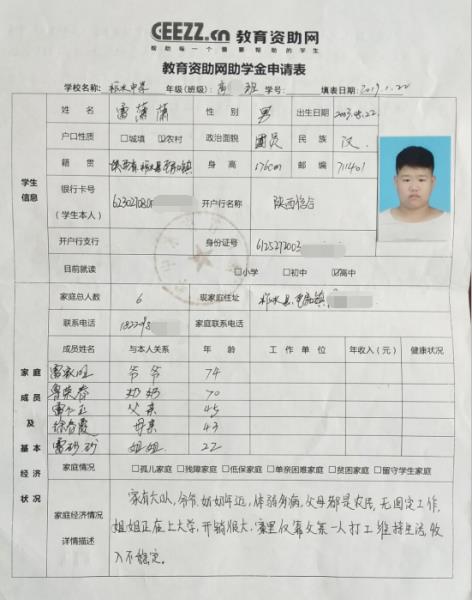 CEEZZ.cn 教育资助网
帮助每一个需要帮助的学生
教育资助网助学金申请表
学校名称: 柞水中学 年级(班级): 高 班 学号: 填表日期: 2019.1.22
姓名 雷 性别 男 出生日期
户口性质 □城填 ☑农村 政治面貌 团员 民族 汉
籍贯 陕西省柞水县 镇 身高 176cm 邮编 711401
学生信息
银行卡号(学生本人) 623027080 开户行名称 陕西信合
开户行支行 身份证号 6125272003
目前就读 □小学 □初中 ☑高中
家庭总人数 6 现家庭住址 柞水县 镇
联系电话 家庭联系电话
成员姓名 与本人关系 年龄 工作单位 年收入(元) 健康状况
爷爷 74
奶奶 70
父亲 45
母亲 43
姐姐 22
家庭成员及基本经济状况
家庭情况 □孤儿家庭 □残障家庭 □低保家庭 □单亲困难家庭 □贫困家庭 □留守学生家庭
家庭经济情况详情描述
家有六口人,爷爷,奶奶年迈,体弱多病,父母都是农民,无固定工作,
姐姐正在上大学,开销很大,家里仅靠父亲一人打工维持生活,收
入不稳定。